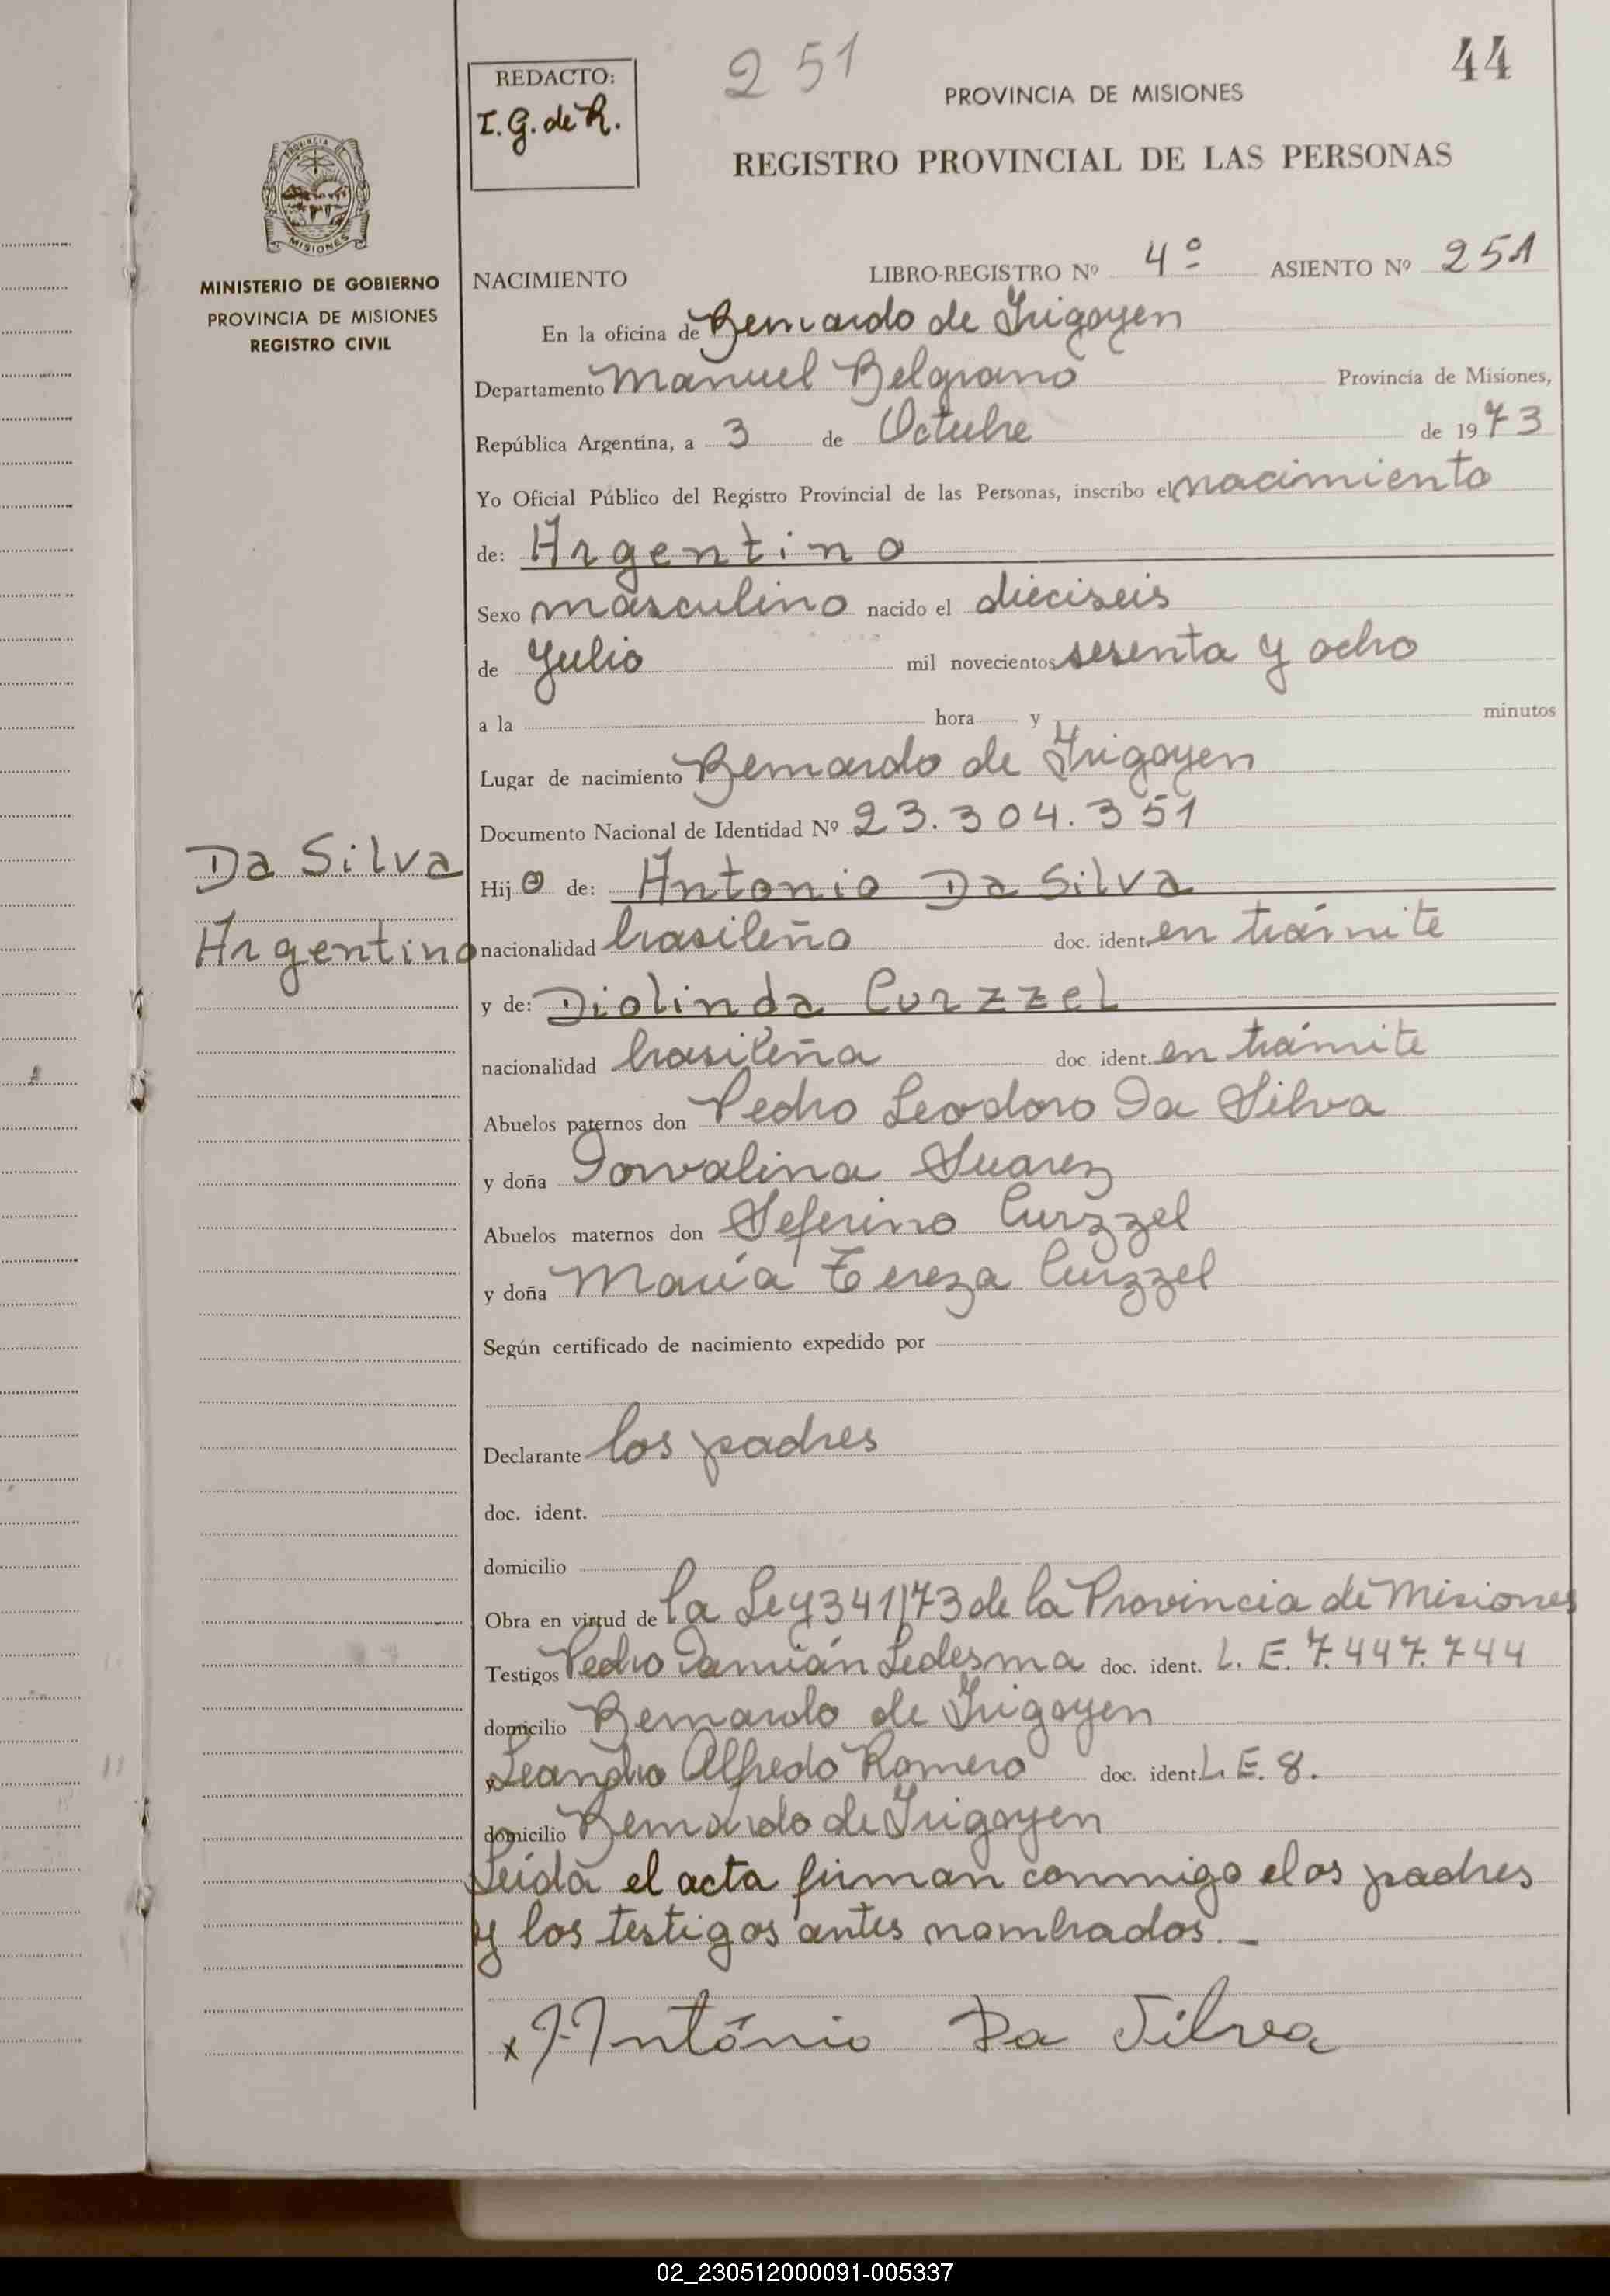 251
44
REDACTO:
I. G. de R.
PROVINCIA DE MISIONES
REGISTRO PROVINCIAL DE LAS PERSONAS
PROVINCIA DE
MISIONES
MINISTERIO DE GOBIERNO
PROVINCIA DE MISIONES
REGISTRO CIVIL
NACIMIENTO LIBRO-REGISTRO Nº 4º ASIENTO Nº 251
En la oficina de Bernardo de Irigoyen
Departamento Manuel Belgrano Provincia de Misiones,
República Argentina, a 3 de Octubre de 1973
Yo Oficial Público del Registro Provincial de las Personas, inscribo el nacimiento
de: Argentino
Sexo masculino nacido el dieciseis
de Julio mil novecientos sesenta y ocho
a la hora y minutos
Lugar de nacimiento Bernardo de Irigoyen
Documento Nacional de Identidad Nº 23.304.351
Da Silva
Argentino
Hijo de: Antonio Da Silva
nacionalidad brasileño doc. ident. en trámite
y de: Diolinda Curzzel
nacionalidad brasileña doc. ident. en trámite
Abuelos paternos don Pedro Leodoro Da Silva
y doña Dorvalina Suarez
Abuelos maternos don Seferino Curzzel
y doña María Tereza Curzzel
Según certificado de nacimiento expedido por
Declarante los padres
doc. ident.
domicilio
Obra en virtud de la Ley 341/73 de la Provincia de Misiones
Testigos Pedro Damián Ledesma doc. ident. L. E. 7.447.744
domicilio Bernardo de Irigoyen
y Leandro Alfredo Romero doc. ident. L. E. 8.
domicilio Bernardo de Irigoyen
Leída el acta firman conmigo elos padres
y los testigos antes nombrados.-
x Antônio Da Silva
02_230512000091-005337